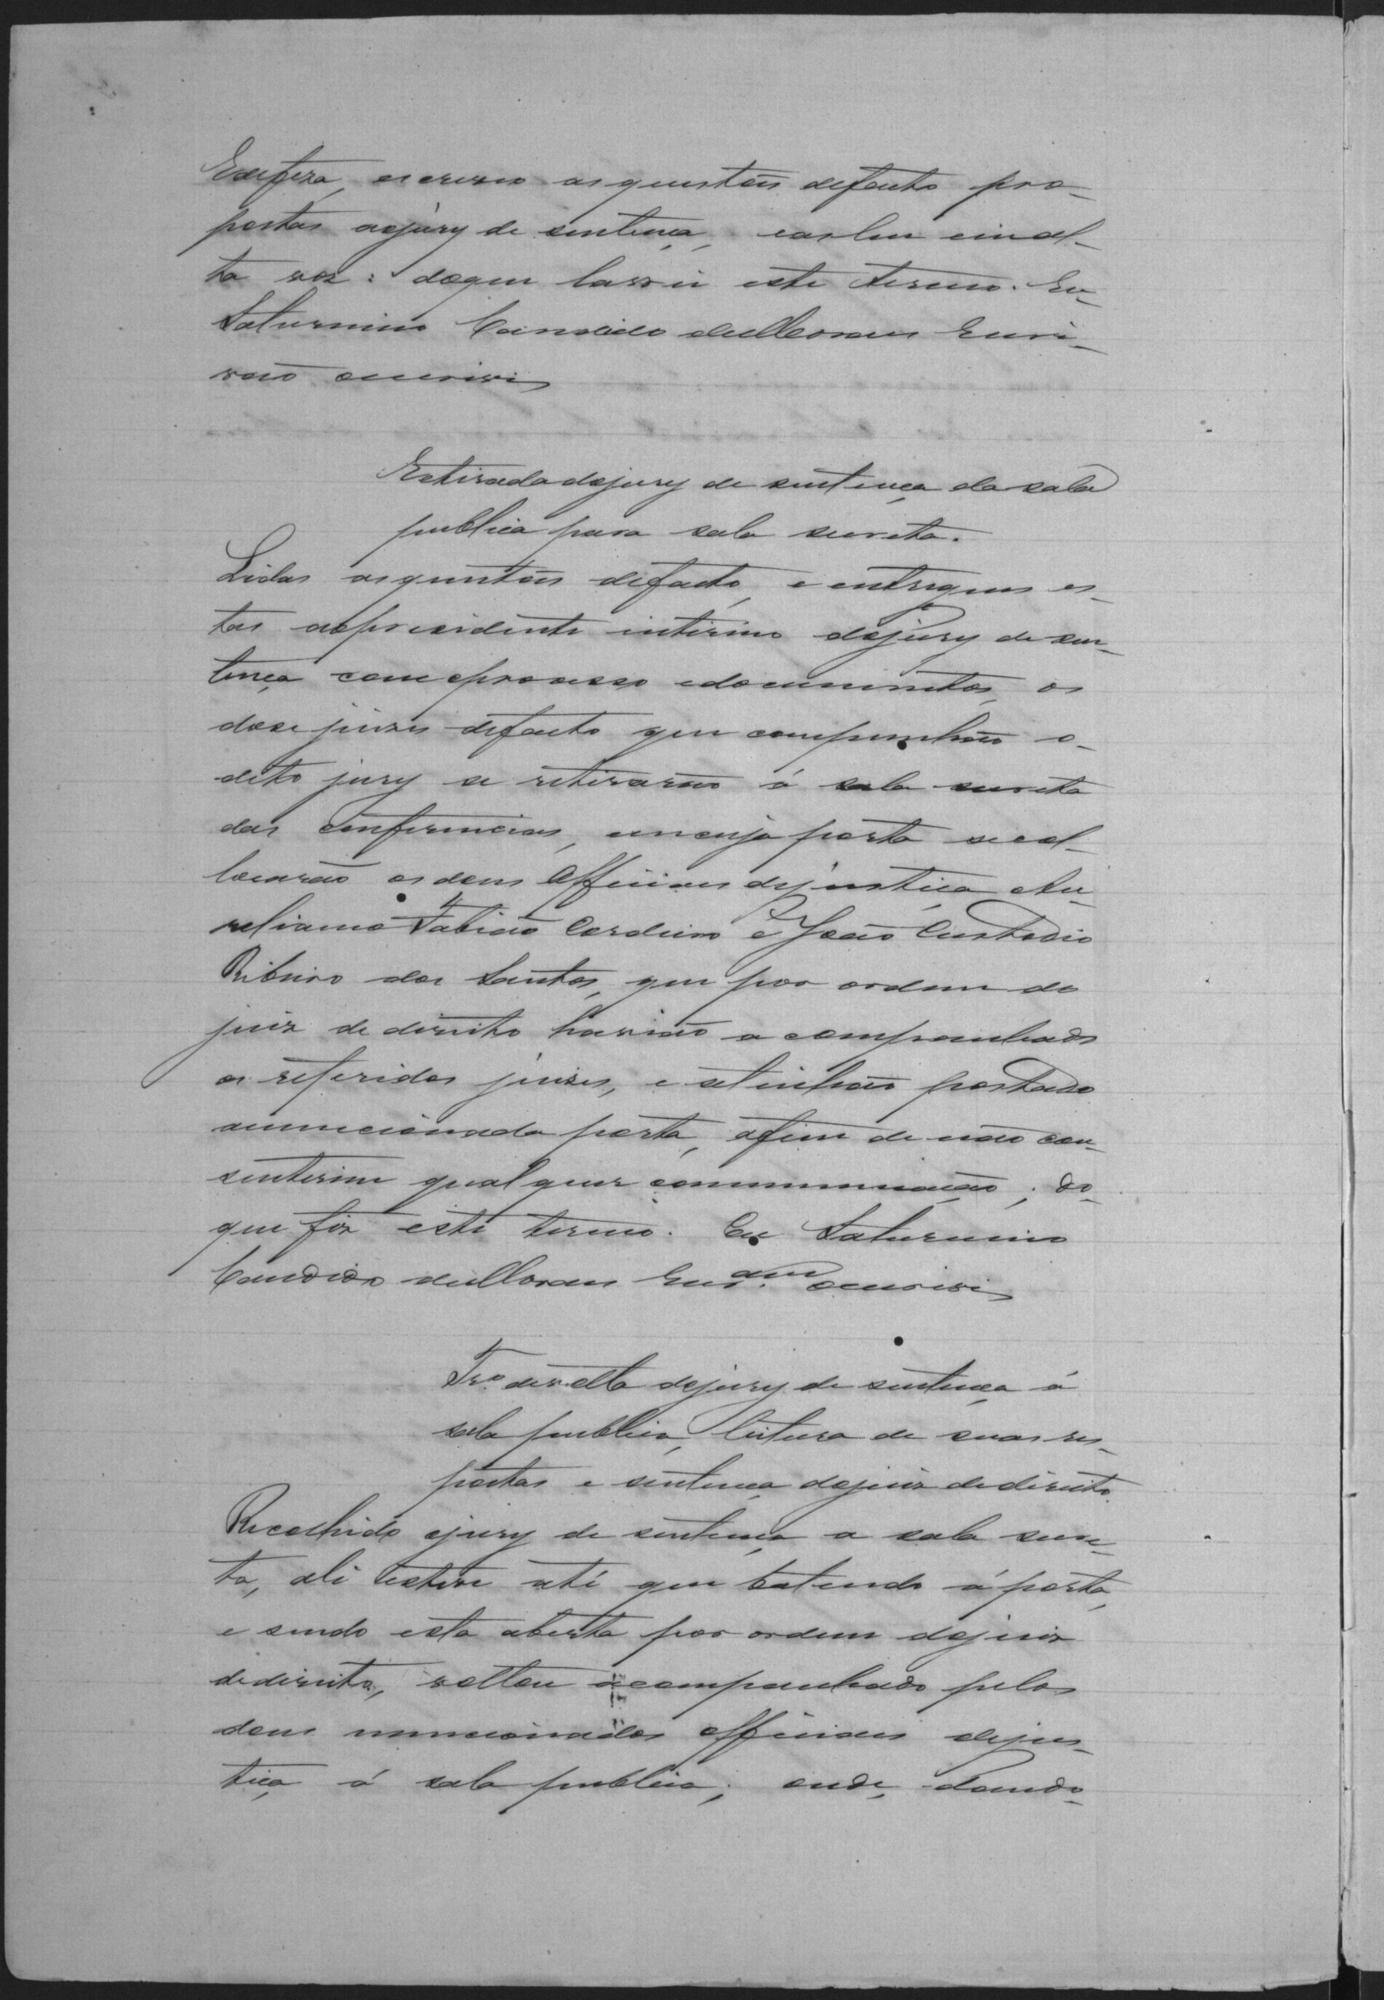 defeza, escreveo as questões defacto pro-
postas aojury de sentença, eas leu em al-
ta voz: doque lavrei este termo. Eu
Saturnino Candido deMoraes Escri-
vão oescrevi
Retirada dojury de sentença da sala
publica para sala secreta.
Lidas asquestões defacto, e entregues es-
tas aopresidente interino dojury de sen-
tença com oprocesso edocumentos, os
doze juizes defacto que compunhão o
dito jury se retirarão á sala secreta
das conferencias, em cuja porta se col-
locarão os dous Officiaes dejustiça Au-
reliano Fabião Cordeiro e João Custodio
Ribeiro dos Santos, que por ordem do
juiz de direito havião acompanhado
os referidos juizes, e setinhão postado
amencionada porta, afim de não con-
sentirem qualquer communicação; do
que fiz este termo. Eu Saturnino
Candido deMoraes Escr.am oescrevi
Tr.o devolta dojury de sentença á
sala publica, leitura de suas res-
postas e sentença dojuiz dedireito.
Recolhido ojury de sentença a sala secre-
ta, ali esteve até que batendo á porta,
e sendo esta aberta por ordem dojuiz
dedireito, voltou acompanhado pelos
dous mencionados officiaes dejus-
tiça á sala publica; onde, dando